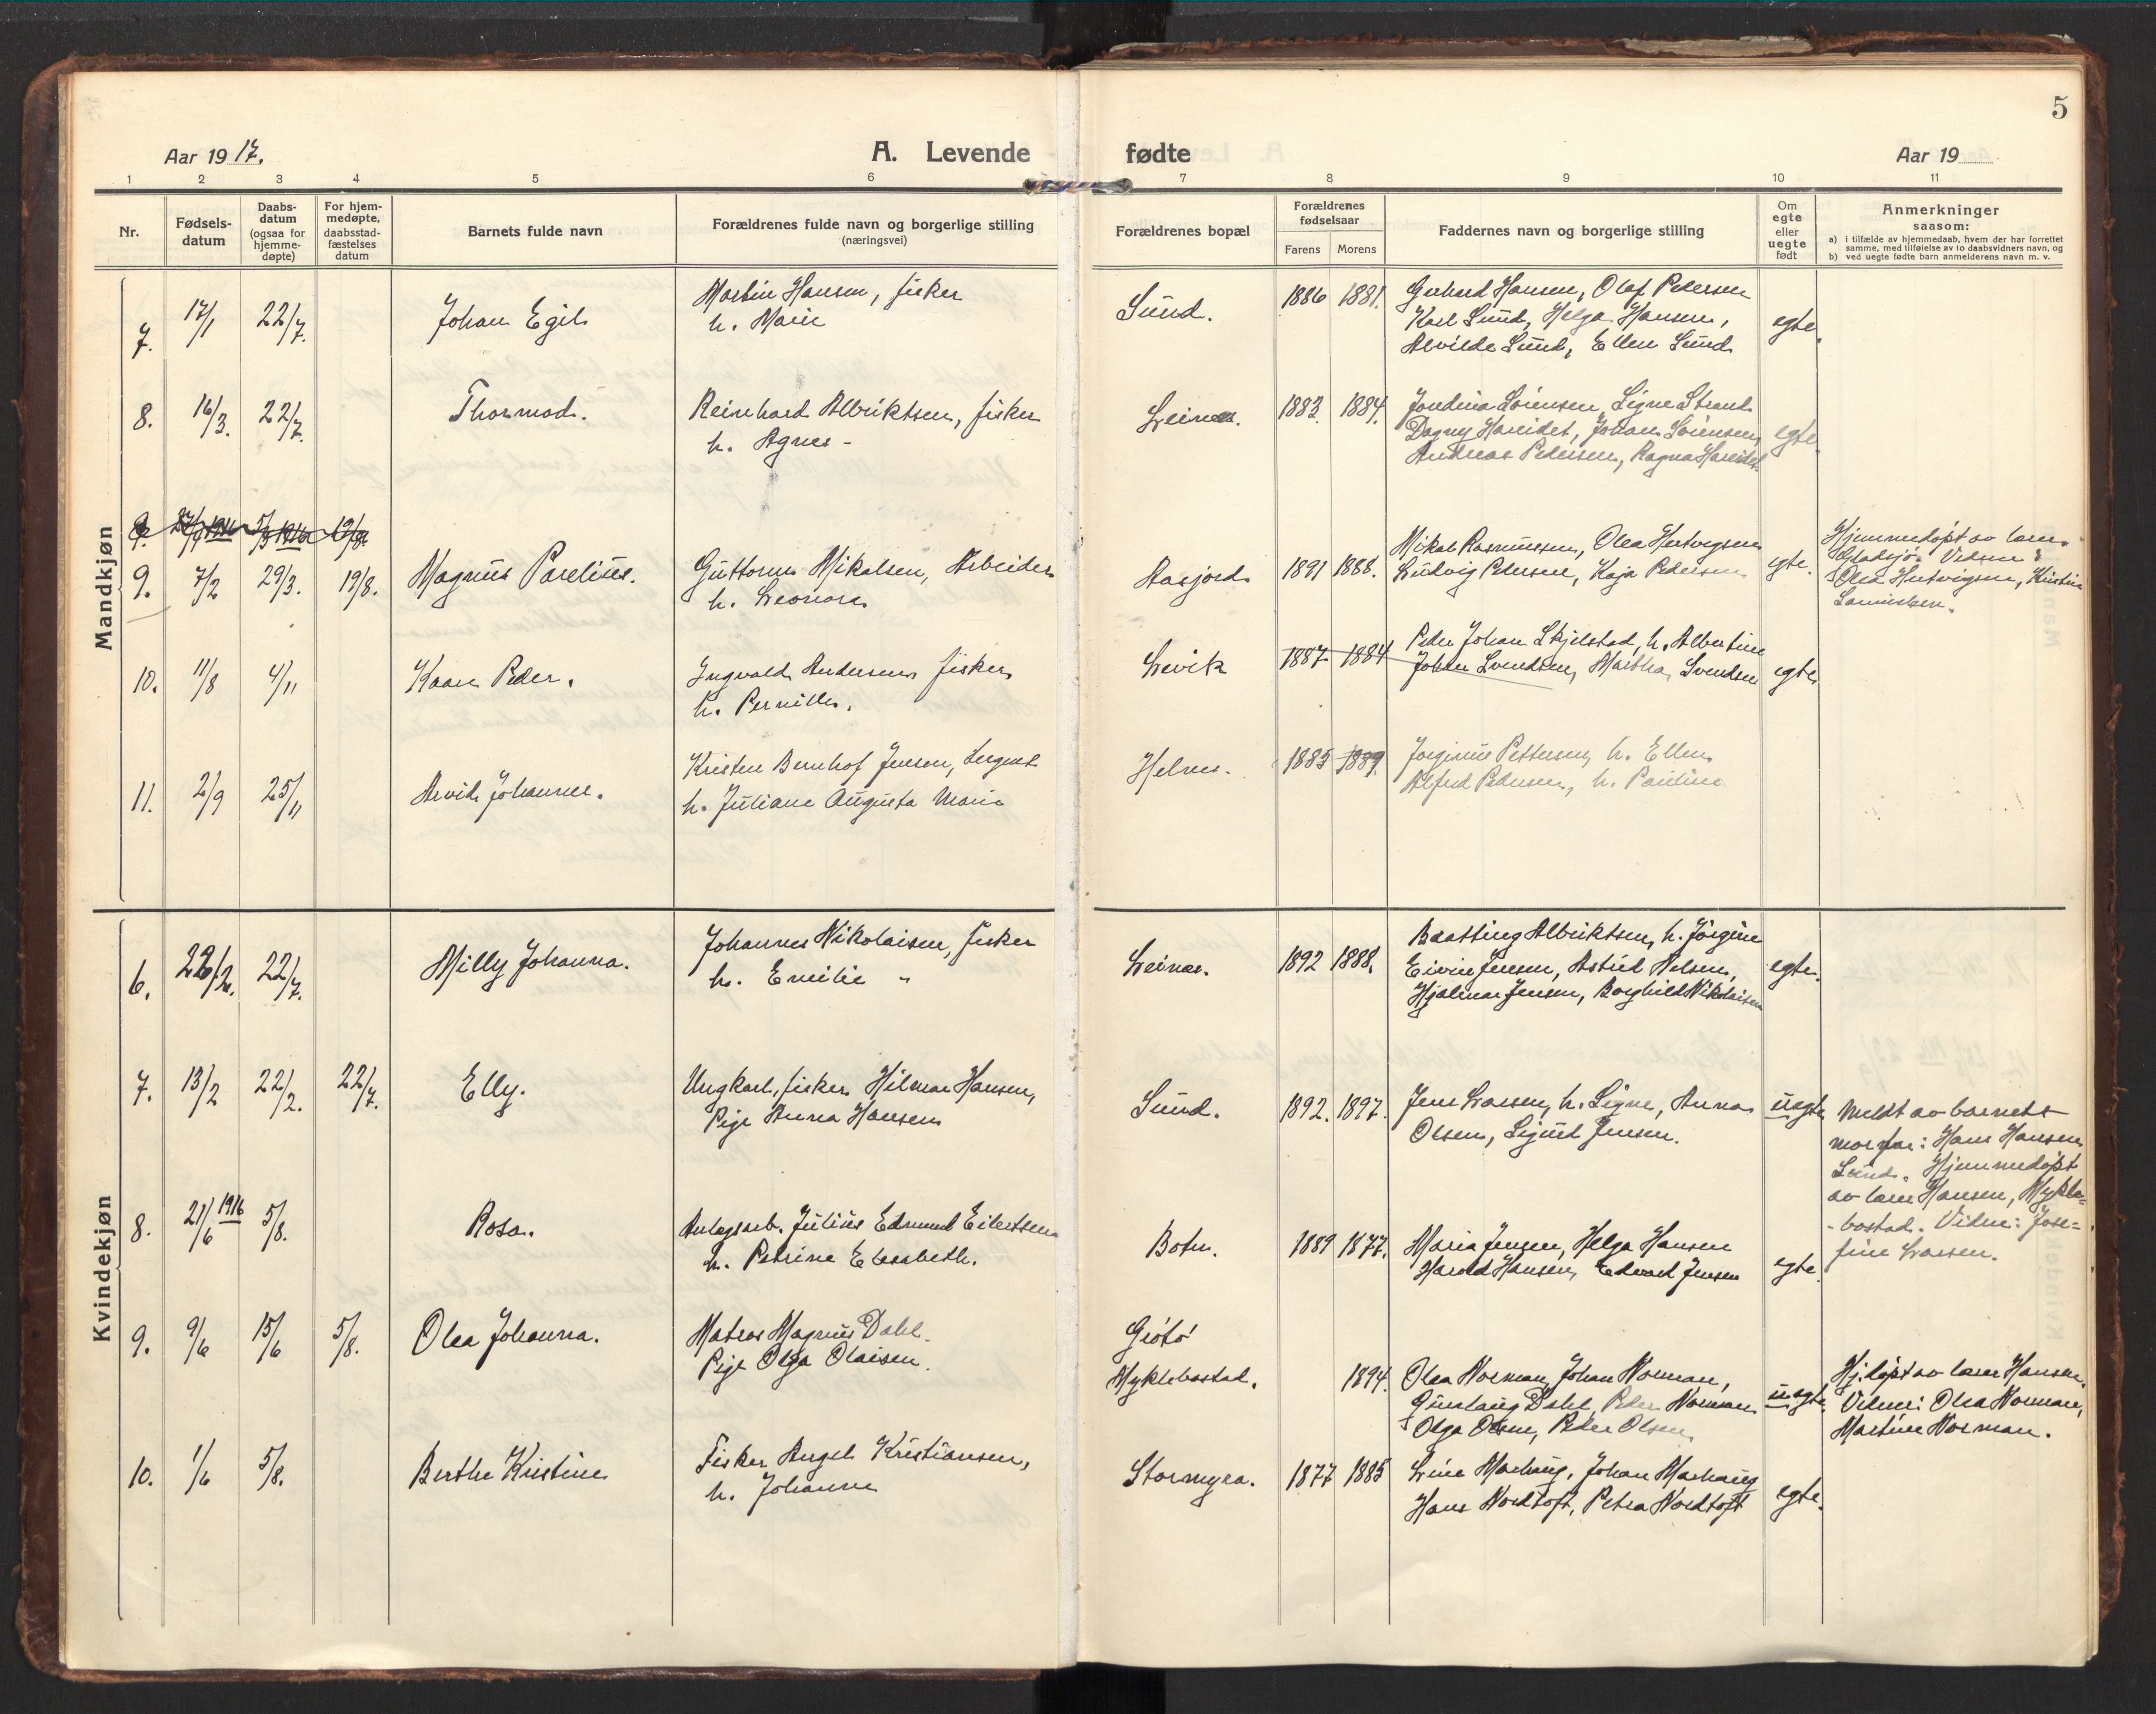 5
Aar 19 17.
A. Levende fødte
Aar 19
1 2 3 4 5 6 7 8 9 10 11
Nr.
Fødsels-
datum
Daabs-
datum
(ogsaa for
hjemme-
døpte)
For hjem-
medøpte,
daabsstad-
fæstelses
datum
Barnets fulde navn
Forældrenes fulde navn og borgerlige stilling
(næringsvei)
Forældrenes bopæl
Forældrenes
fødselsaar
Farens Morens
Faddernes navn og borgerlige stilling
Om
egte
eller
uegte
født
Anmerkninger
saasom:
a) i tilfælde av hjemmedaab, hvem der har forrettet
samme, med tilføielse av to daabsvidners navn, og
b) ved uegte fødte barn anmelderens navn m. v.
Mandkjøn
7. 17/1 22/7. Johan Egil
Martin Hansen, fisker
h. Marie
Sund.
1886 1881.
Gerhard Hansen, Olaf Pedersen
Karl Sund, Helga Hansen,
Alvilde Sund, Ellen Sund
egte.
8. 16/3. 22/7. Thormod.
Reinhard Albriktsen, fisker
h. Agnes -
Leines.
1883. 1884.
Jondina Sørensen, Signe Strand
Dagny Hareidet, Johan Sørensen,
Andreas Pedersen, Ragna Hareidet.
egte
9. 27/9 1916 5/3 19/8.
9. 7/2 29/3. 19/8. Magnus Parelius.
Guttorm Mikalsen, Arbeider
h. Leonora
Aasjord
1891 1888.
Mikal Rasmussen, Olea Hertvigsen
Ludvig Pedersen, Kaja Pedersen
egte.
Hjemmedøpt av lærer
Vidner:
Olea Hertvigsen, Kristine
10. 11/8 4/11 Kaare Peder.
Ingvald Andersen fisker
h. Pernille.
Levik
1887 1884
Peder Johan Skjelstad, h. Albertine
Johan Svendsen, Martha Svendsen
egte
11. 2/9 25/11 Arvid Johannes.
Kristen Bernhof Jensen, Sergeant
h. Juliane Augusta Marie
Helnes.
1885 1889.
Jørginus Pettersen, h. Ellen
Alfred Pedersen, h. Pauline
Kvindekjøn
6. 22/2. 22/7. Milly Johanna.
Johannes Nikolaisen, fisker
h. Emilie "
Leines.
1892 1888.
Baatting Albriktsen, h. Jørgine
Eivin Jensen, Astrid Nilsen,
Hjalmar Jensen, Borghild Nikolaisen
egte.
7. 13/2 22/2. 22/7. Elly.
Ungkarl, fisker Hilmar Hansen,
Pige Anna Hansen
Sund.
1892. 1897.
Jens Larsen, h. Signe, Anna
Olsen, Sigurd Jensen.
uegte
Meldt av barnets
morfar: Hans Hansen
Sund. Hjemmedøpt
av lærer Hansen, Mykle-
-bostad. Vidne: Jose=
fine Larsen.
8. 21/6 1916 5/8. Rosa.
Anlegsarb. Julius Edmund Eilertsen
h. Petrine Elesabeth.
Botn.
1889 1877.
Maria Jensen, Helga Hansen
Harald Hansen, Edvard Jensen
egte.
9. 9/6 15/6 5/8. Olea Johanna.
Matros Magnus Dahl.
Pige Olga Olaisen.
Grøtø
Myklebostad.
1894.
Olea Norman, Johan Norman,
Dahl, Peder Norman
Olga Olsen, Peder Olsen
uegte.
Hj. døpt av lærer Hansen.
Vidner: Olea Norman,
Martine Norman.
10. 1/6 5/8. Berthe Kristine
Fisker Angel Kristiansen,
h. Johanne
Stormyra.
1877 1885
Line Marhaug, Johan Marhaug
Hans Nordtoft, Petra Nordtoft
egte.